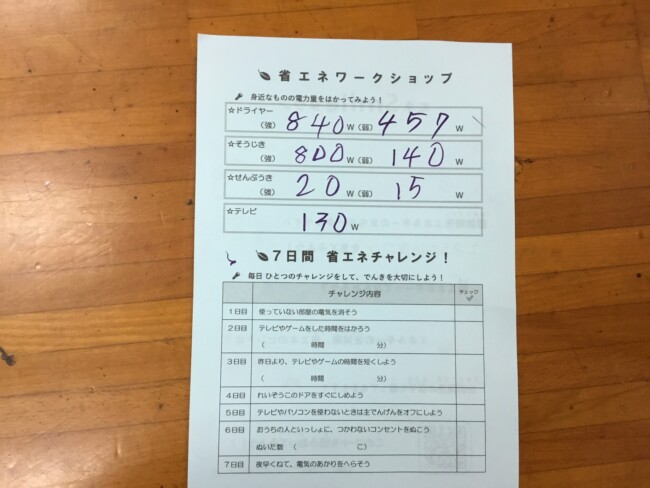 省エネワークショップ
身近なものの電力量をはかってみよう！
☆ドライヤー
（強） 840 W（弱） 457 W
☆そうじき
（強） 800 W（弱） 140 W
☆せんぷうき
（強） 20 W（弱） 15 W
☆テレビ
130 W
7日間 省エネチャレンジ！
毎日 ひとつのチャレンジをして、でんきを大切にしよう！
チャレンジ内容 チェック
1日目 使っていない部屋の電気を消そう
2日目 テレビやゲームをした時間をはかろう
（ 時間 分）
3日目 昨日より、テレビやゲームの時間を短くしよう
（ 時間 分）
4日目 れいぞうこのドアをすぐにしめよう
5日目 テレビやパソコンを使わないときは主でんげんをオフにしよう
6日目 おうちの人といっしょに、つかわないコンセントをぬこう
ぬいた数 （ こ）
7日目 夜早くねて、電気のあかりをへらそう